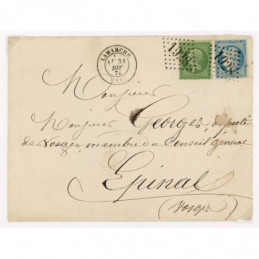 LAMARCHE
Monsieur
Monsieur Georges, député
des Vosges, membre du Conseil général
Epinal
(Vosges)